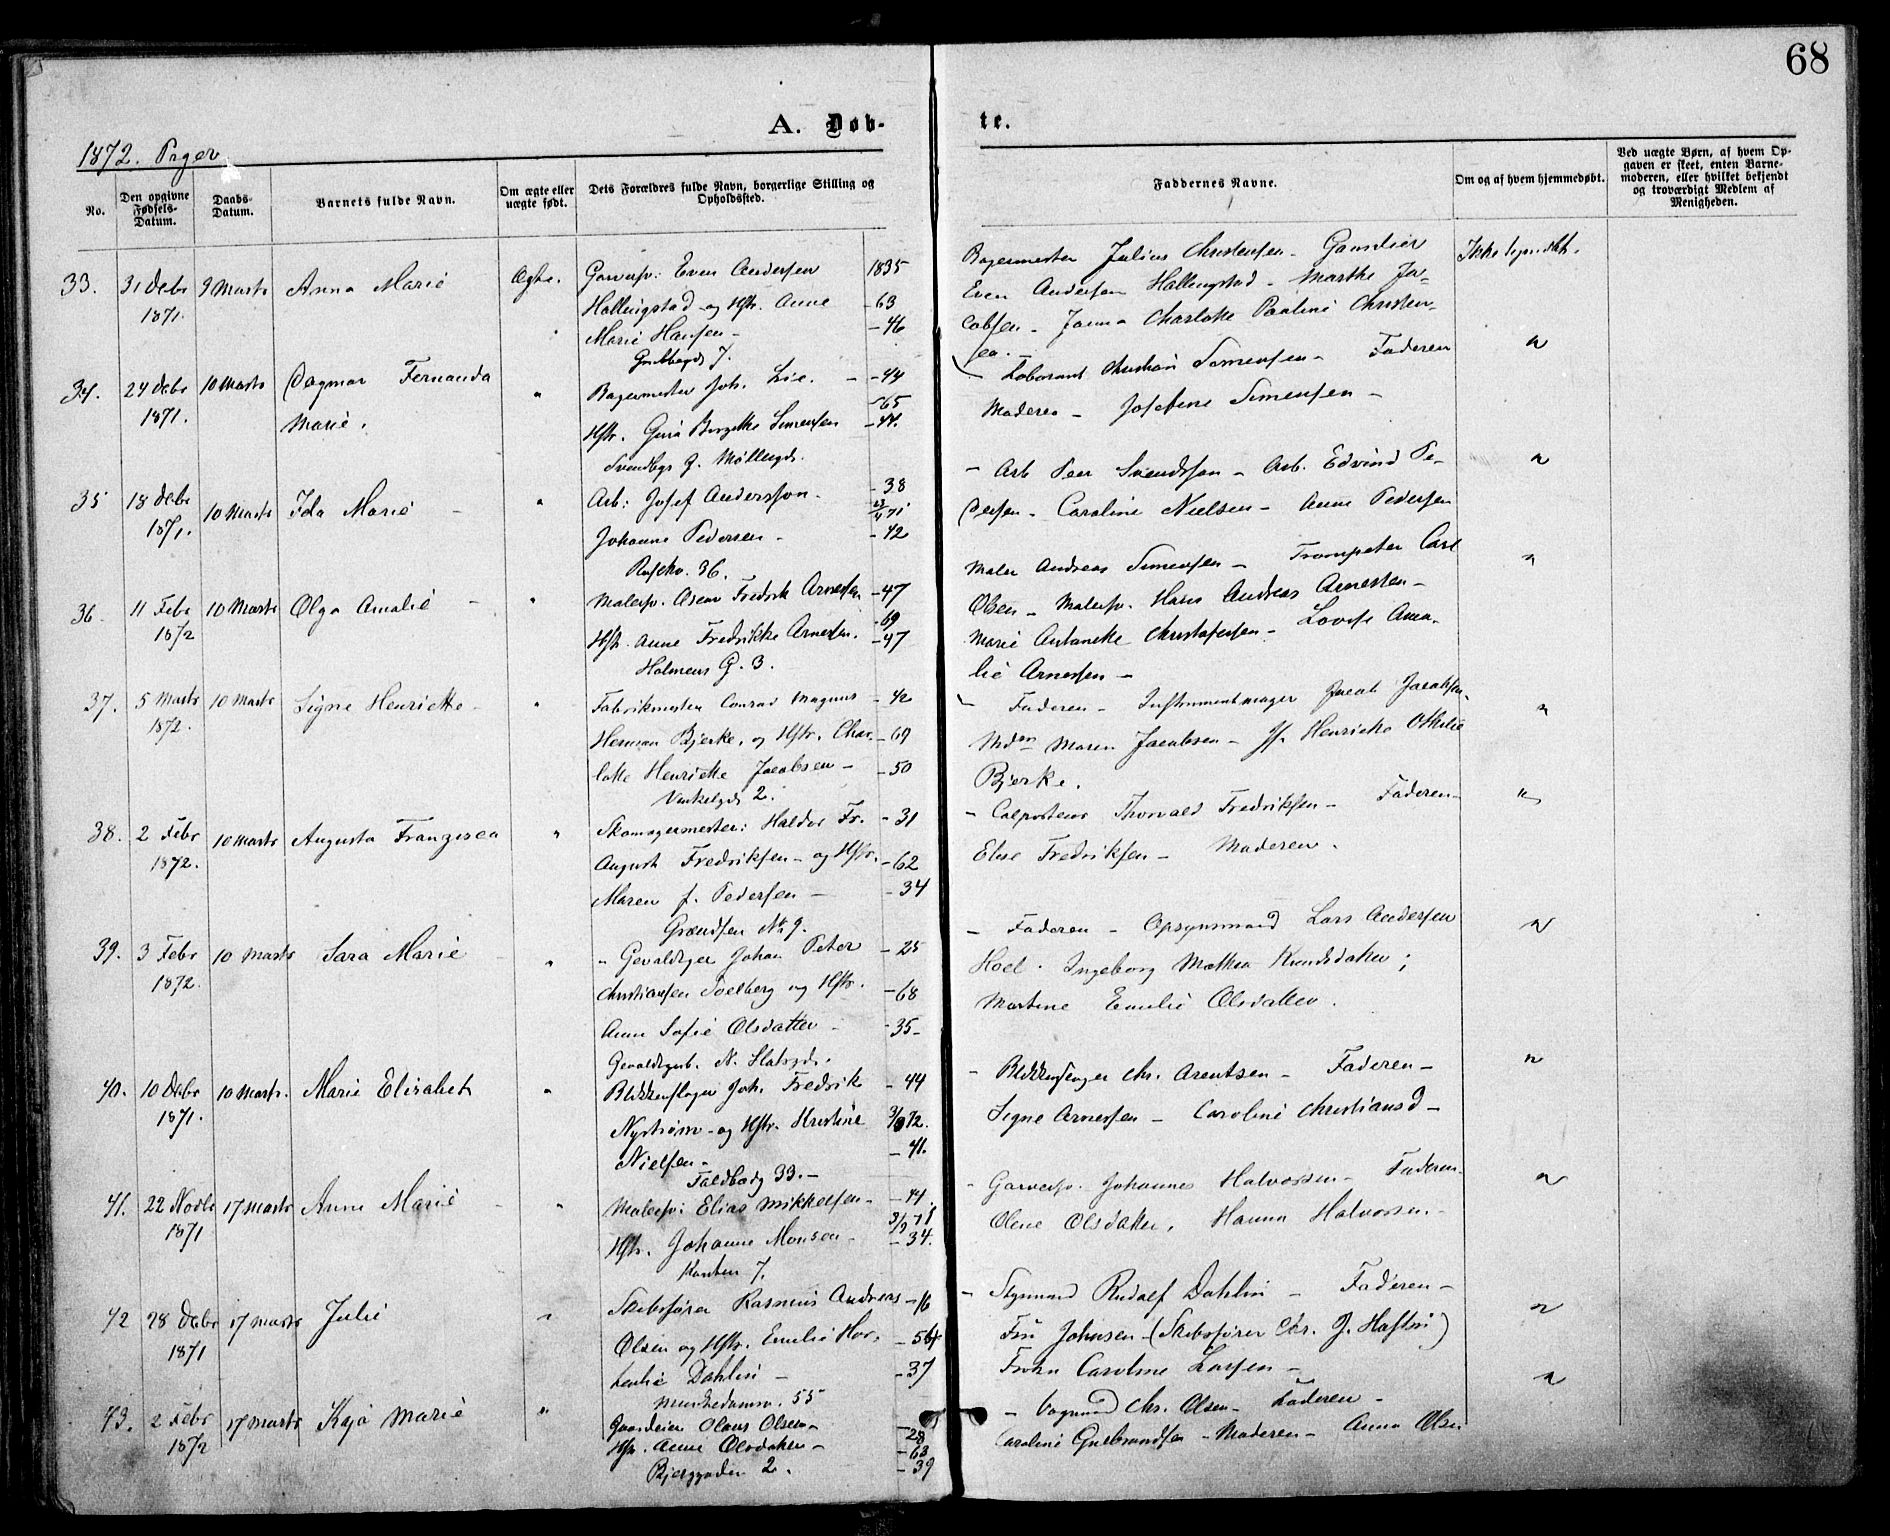 68
A. Døb- te.
1872. Piger
No.
Den opgivne Fødsels-Datum.
Daabs-Datum.
Barnets fulde Navn.
Om ægte eller uægte født.
Dets Forældres fulde Navn, borgerlige Stilling og Opholdssted.
Faddernes Navne.
Om og af hvem hjemmedøbt.
Ved uægte Børn, af hvem Op-
gaven er skeet, enten Barne-
moderen, eller hvilket bekjendt
og troværdigt Medlem af
Menigheden.
33. 31 Debr 9 Marts Anna Marie Ægte. Garversv: Even Andersen 1835
1871. Hallingstad og Hstr. Anne -63
Marie Hansen - -46
7.
Bagermester Julius Christensen - Gaardeier Ikke
Even Andersen Hallingstad - Marthe Ja-
cobsen - Janna Charlotte Pauline Christen-
34. 24 Debr 10 Marts Dagmar Fernanda " Bagermester Joh. Lie. - -44
1871. Marie. -65
Hstr. Gina Birgitte Simensen -44.
Møllergd.
- Laborant Christian Simensen - Faderen "
Moderen - Josefine Simensen -
35 18 Debr 10 Marts Ida Marie - " Arb: Josef Andersson - -38
1871. Johanne Pedersen - -42
36.
- Arb Peer Svendsen - Arb. Edvind Pe- "
dersen - Caroline Nielsen - Anne Pedersen
36. 11 Febr 10 Marts Olga Amalie - " Malersv. Oscar Fredrik Arnesen -47
1872 -69
Hstr. Anne Fredrikke Arnesen. -47
Holmens G. 3.
Maler Andreas Simensen - Trompeter Carl "
Olsen - Malersv. Hans Andreas Arnesen -
Marie Antonette Christofersen - Lovise Ama-
lie Arnesen -
37. 5 Marts 10 Marts Signe Henriette - " Fabrikmester Conrad Magnus -42
1872. Herman Bjerke, og Hstr. Char- -69
lotte Henriette Jacobsen - -50
Vinkelgd. 2.
Faderen - Instrumentmager Jacob Jacobsen - "
Mdm Maren Jacobsen - Jf. Henriette Othilie
Bjerke.
38. 2 Febr 10 Marts Augusta Franzisca " Skomagermester: Haldor Fr. -31
1872. August Fredriksen - og Hstr. -62
Maren f. Pedersen - -34
Grændsen No 9.
- Colporteur Thorvald Fredriksen - Faderen - "
Else Fredriksen - Moderen.
39. 3 Febr 10 Marts Sara Marie - " Gevaldiger Johan Peter -25
1872. Christiansen Solberg og Hstr. -68
Anne Sofie Olsdatter - -35-
- Faderen - Opsynsmand Lars Andersen "
Hoel. Ingeborg Mathea Knudsdatter;
Martine Emilie Olsdatter.
40. 10 Debr 10 Marts. Marie Elisabet " Blikkenslager Joh. Fredrik -44
1871. Nystrøm - og Hstr. Kristine
Nielsen - -41.
33. -
- Blikkenslager Chr. Arentsen - Faderen - "
Signe Arnesen - Caroline Christiansd -
41. 22 Novbr 17 Marts Anne Marie - " Malersv: Elias Mikkelsen - -44.
1871 Hstr. Johanne Monsen - -34.
7.
- Garversv. Johannes Halvorsen - Faderen - "
Olene Olsdatter. Hanna Halvorsen -
42 28 Debr 17 Marts Julie " Skibsfører Rasmus Andreas -16
1871 Olsen og Hstr. Emilie Hor- -54
tentie Dahlin - -37
Munkedamsv. 55
- Styrmand Rudolf Dahlin - Faderen - "
Frü Johnsen - (Skibsfører Chr. J. Haftin)
Frøkn Caroline Larsen -
43. 2 Febr 17 Marts Kaja Marie " Gaardeier Olaus Olsen - -28
1872 Hstr. Anne Olsdatter - -63
Bjerggaden 2. -39
- Vognmd Chr. Olsen - Faderen - "
Caroline Gulbrandsen - Moderen - Anna Olsen